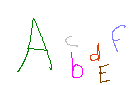 A c b d E F